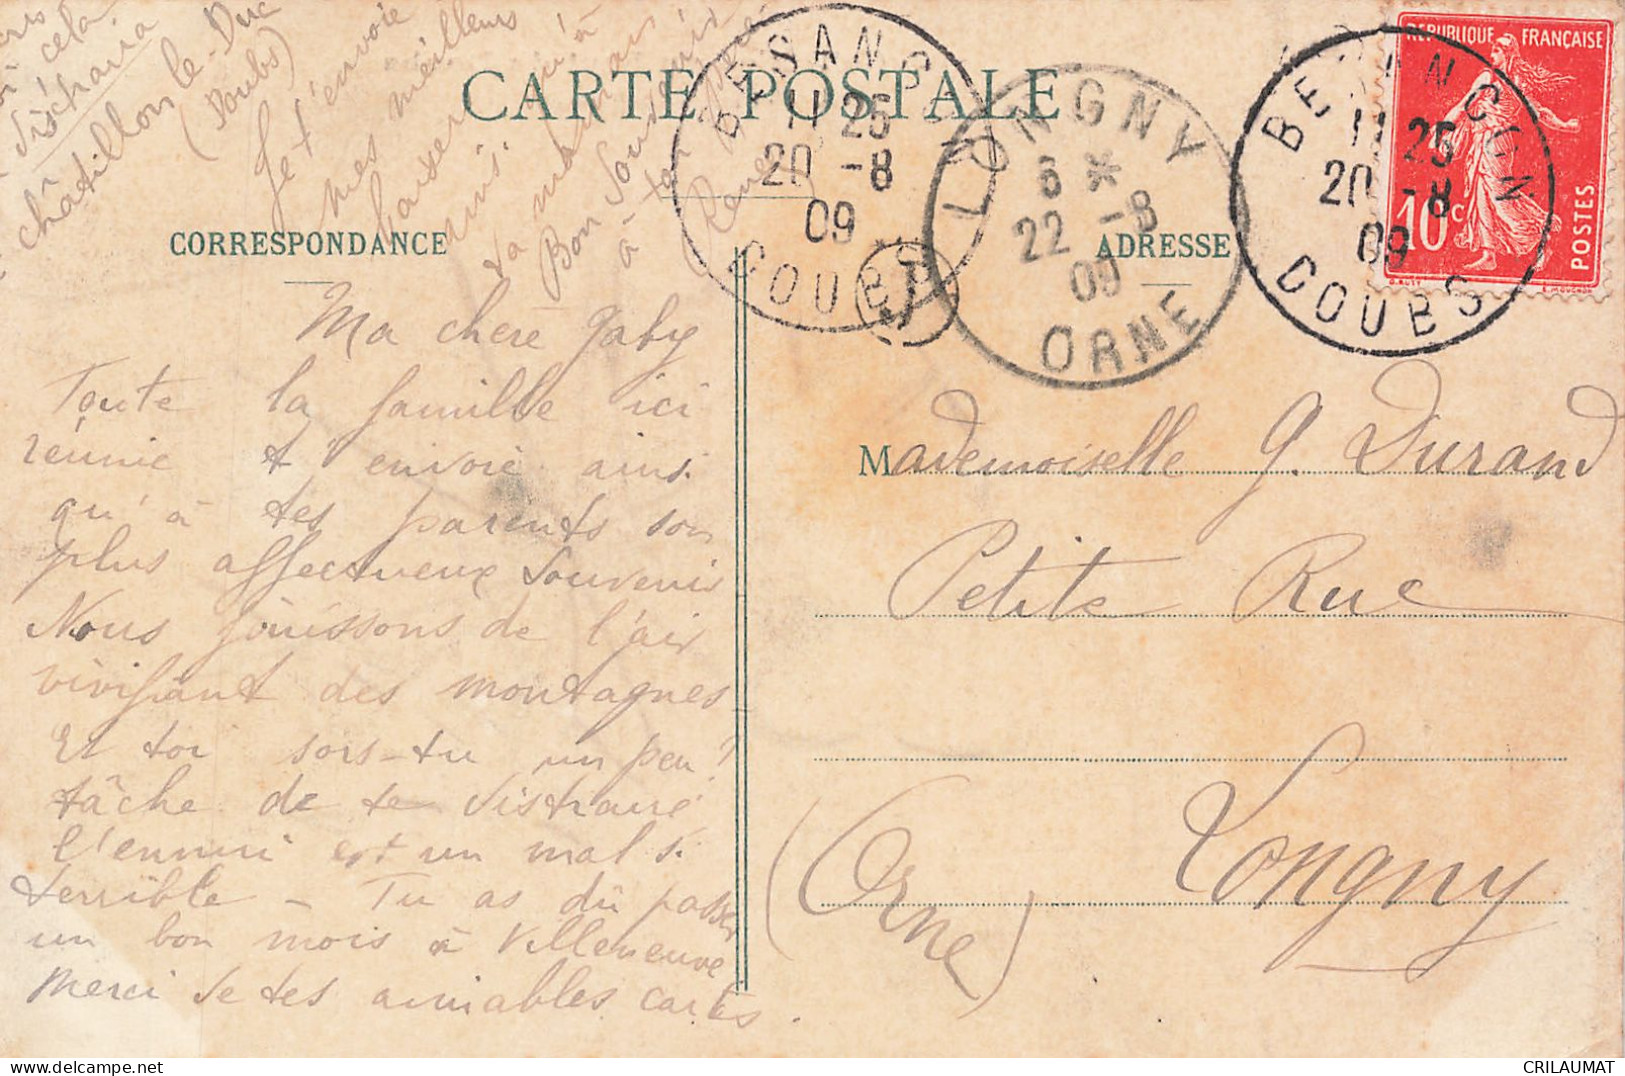 CARTE POSTALE
CORRESPONDANCE
ADRESSE
REPUBLIQUE FRANÇAISE
10c
POSTES
BESANCON
11 25
20 -8
09
DOUBS
LONGNY
6 *
22 -8
09
ORNE
BESANCON
11 25
20 -8
09
DOUBS
Ma chère Gaby
Toute la famille ici
réunie t'envoie ainsi
qu'à tes parents son
plus affectueux souvenir
Nous jouissons de l'air
vivifiant des montagnes
Et toi sors-tu un peu?
tâche de te distraire
l'ennui est un mal si
terrible - Tu as dû passer
un bon mois à Villeneuve
Merci de tes aimables cartes.
cela
châtillon-le-Duc
(Doubs)
Je t'envoie
mes meilleurs
baisers
amis.
ta maman
Bon Souvenir
à ton père
René
Mademoiselle G. Durand
Petite Rue
Longny
(Orne)
CRILAUMAT